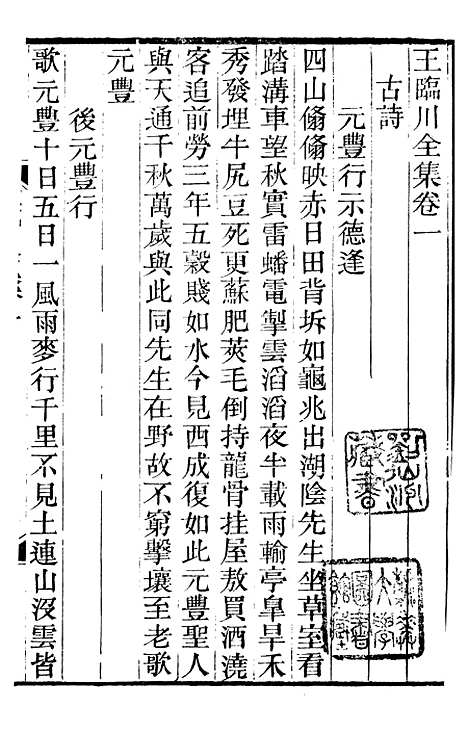 王臨川全集卷一
古詩
元豐行示德逢
四山翛翛映赤日田背坼如龜兆出湖陰先生坐草室看
踏溝車望秋實雷蟠電掣雲滔滔夜半載雨輸亭皐旱禾
秀發埋牛尻豆死更蘇肥莢毛倒持龍骨挂屋敖買酒澆
客追前勞三年五穀賤如水今見西成復如此元豐聖人
與天通千秋萬歲與此同先生在野故不窮擊壤至老歌
元豐
後元豐行
歌元豐十日五日一風雨麥行千里不見土連山沒雲皆
藏書
大學
圖書